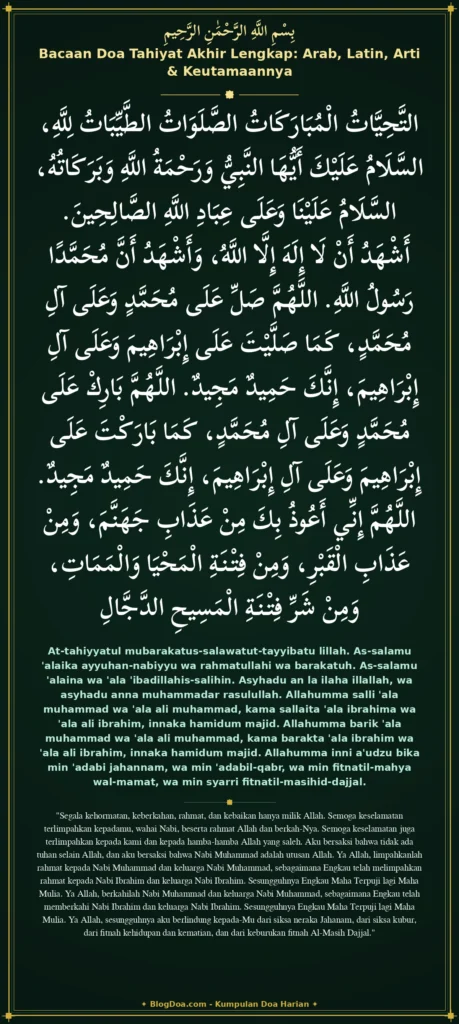 بِسْمِ اللَّهِ الرَّحْمَٰنِ الرَّحِيمِ
Bacaan Doa Tahiyat Akhir Lengkap: Arab, Latin, Arti
& Keutamaannya
التَّحِيَّاتُ الْمُبَارَكَاتُ الصَّلَوَاتُ الطَّيِّبَاتُ لِلَّهِ،
السَّلَامُ عَلَيْكَ أَيُّهَا النَّبِيُّ وَرَحْمَةُ اللَّهِ وَبَرَكَاتُهُ،
السَّلَامُ عَلَيْنَا وَعَلَى عِبَادِ اللَّهِ الصَّالِحِينَ.
أَشْهَدُ أَنْ لَا إِلَهَ إِلَّا اللَّهُ، وَأَشْهَدُ أَنَّ مُحَمَّدًا
رَسُولُ اللَّهِ. اللَّهُمَّ صَلِّ عَلَى مُحَمَّدٍ وَعَلَى آلِ
مُحَمَّدٍ، كَمَا صَلَّيْتَ عَلَى إِبْرَاهِيمَ وَعَلَى آلِ
إِبْرَاهِيمَ، إِنَّكَ حَمِيدٌ مَجِيدٌ. اللَّهُمَّ بَارِكْ عَلَى
مُحَمَّدٍ وَعَلَى آلِ مُحَمَّدٍ، كَمَا بَارَكْتَ عَلَى
إِبْرَاهِيمَ وَعَلَى آلِ إِبْرَاهِيمَ، إِنَّكَ حَمِيدٌ مَجِيدٌ.
اللَّهُمَّ إِنِّي أَعُوذُ بِكَ مِنْ عَذَابِ جَهَنَّمَ، وَمِنْ
عَذَابِ الْقَبْرِ، وَمِنْ فِتْنَةِ الْمَحْيَا وَالْمَمَاتِ،
وَمِنْ شَرِّ فِتْنَةِ الْمَسِيحِ الدَّجَّالِ
At-tahiyyatul mubarakatus-salawatut-tayyibatu lillah. As-salamu
'alaika ayyuhan-nabiyyu wa rahmatullahi wa barakatuh. As-salamu
'alaina wa 'ala 'ibadillahis-salihin. Asyhadu an la ilaha illallah, wa
asyhadu anna muhammadar rasulullah. Allahumma salli 'ala
muhammad wa 'ala ali muhammad, kama sallaita 'ala ibrahima wa
'ala ali ibrahim, innaka hamidum majid. Allahumma barik 'ala
muhammad wa 'ala ali muhammad, kama barakta 'ala ibrahim wa
'ala ali ibrahim, innaka hamidum majid. Allahumma inni a'udzu bika
min 'adabi jahannam, wa min 'adabil-qabr, wa min fitnatil-mahya
wal-mamat, wa min syarri fitnatil-masihid-dajjal.
"Segala kehormatan, keberkahan, rahmat, dan kebaikan hanya milik Allah. Semoga keselamatan
terlimpahkan kepadamu, wahai Nabi, beserta rahmat Allah dan berkah-Nya. Semoga keselamatan juga
terlimpahkan kepada kami dan kepada hamba-hamba Allah yang saleh. Aku bersaksi bahwa tidak ada
tuhan selain Allah, dan aku bersaksi bahwa Nabi Muhammad adalah utusan Allah. Ya Allah, limpahkanlah
rahmat kepada Nabi Muhammad dan keluarga Nabi Muhammad, sebagaimana Engkau telah melimpahkan
rahmat kepada Nabi Ibrahim dan keluarga Nabi Ibrahim. Sesungguhnya Engkau Maha Terpuji lagi Maha
Mulia. Ya Allah, berkahilah Nabi Muhammad dan keluarga Nabi Muhammad, sebagaimana Engkau telah
memberkahi Nabi Ibrahim dan keluarga Nabi Ibrahim. Sesungguhnya Engkau Maha Terpuji lagi Maha
Mulia. Ya Allah, sesungguhnya aku berlindung kepada-Mu dari siksa neraka Jahanam, dari siksa kubur,
dari fitnah kehidupan dan kematian, dan dari keburukan fitnah Al-Masih Dajjal."
✦ BlogDoa.com - Kumpulan Doa Harian ✦